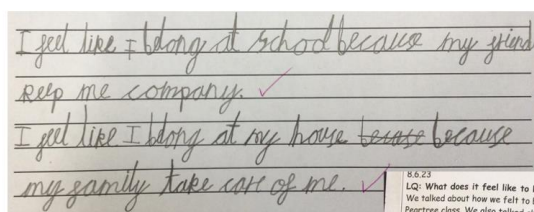 I feel like I belong at school because my friend
keep me company.
I feel like I belong at my house because
my family take care of me.
8.6.23
LQ: What does it feel like to
We talked about how we felt to
Peartree class. We also talked